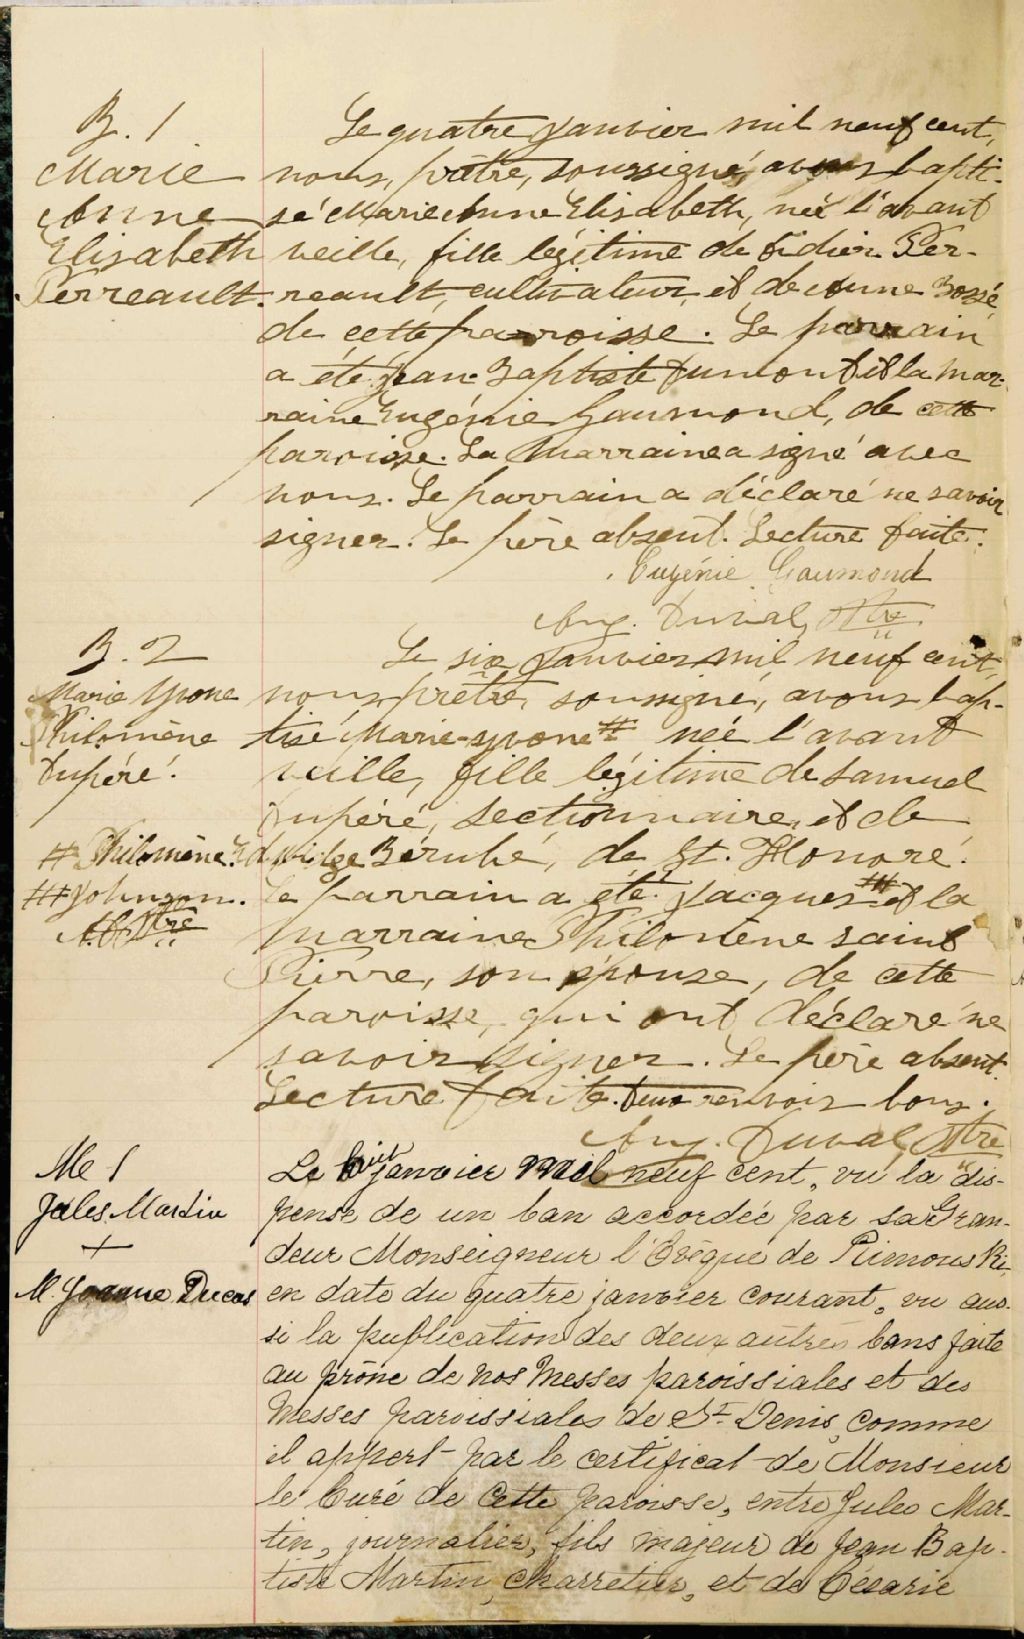 B. 1
Marie
Anne
Elisabeth
Perreault.
Le quatre janvier mil neuf cent,
nous, prêtre, soussigné, avons bapti-
sé Marie Anne Elisabeth, née l'avant
veille, fille légitime de Didier Per-
reault, cultivateur, et de Anne Bossé
de cette paroisse. Le parrain
a été Jean-Baptiste Dumont et la mar-
raine Eugénie Gaumond, de cette
paroisse. La marraine a signé avec
nous. Le parrain a déclaré ne savoir
signer. Le père absent. Lecture faite.
Eugénie Gaumond
Aug. Duval, Ptre
B. 2
Marie Yvone
Philomène
Dupéré.
# Philomène.
## Johnson.
A.D. Ptre
Le six janvier mil neuf cent,
nous, prêtre, soussigné, avons bap-
tisé Marie-Yvone # née l'avant
veille, fille légitime de Samuel
Dupéré, sectionnaire, et de
Edwidge Bérubé, de St. Honoré.
Le parrain a été Jacques ## et la
marraine Philomène Saint
Pierre, son épouse, de cette
paroisse, qui ont déclaré ne
savoir signer. Le père absent.
Lecture faite. Deux renvois bons.
Aug. Duval, Ptre
Me 1
Jules Martin
+
M. Joanne Ducas
Le huit janvier mil neuf cent, vu la dis-
pense de un ban accordée par sa Gran-
deur Monseigneur l'Evêque de Rimouski,
en date du quatre janvier courant, vu aus-
si la publication des deux autres bans faite
au prône de nos Messes paroissiales et des
Messes paroissiales de St Denis, comme
il appert par le certificat de Monsieur
le Curé de cette paroisse, entre Jules Mar-
tin, journalier, fils majeur de Jean Bap-
tiste Martin, charretier, et de Césarie